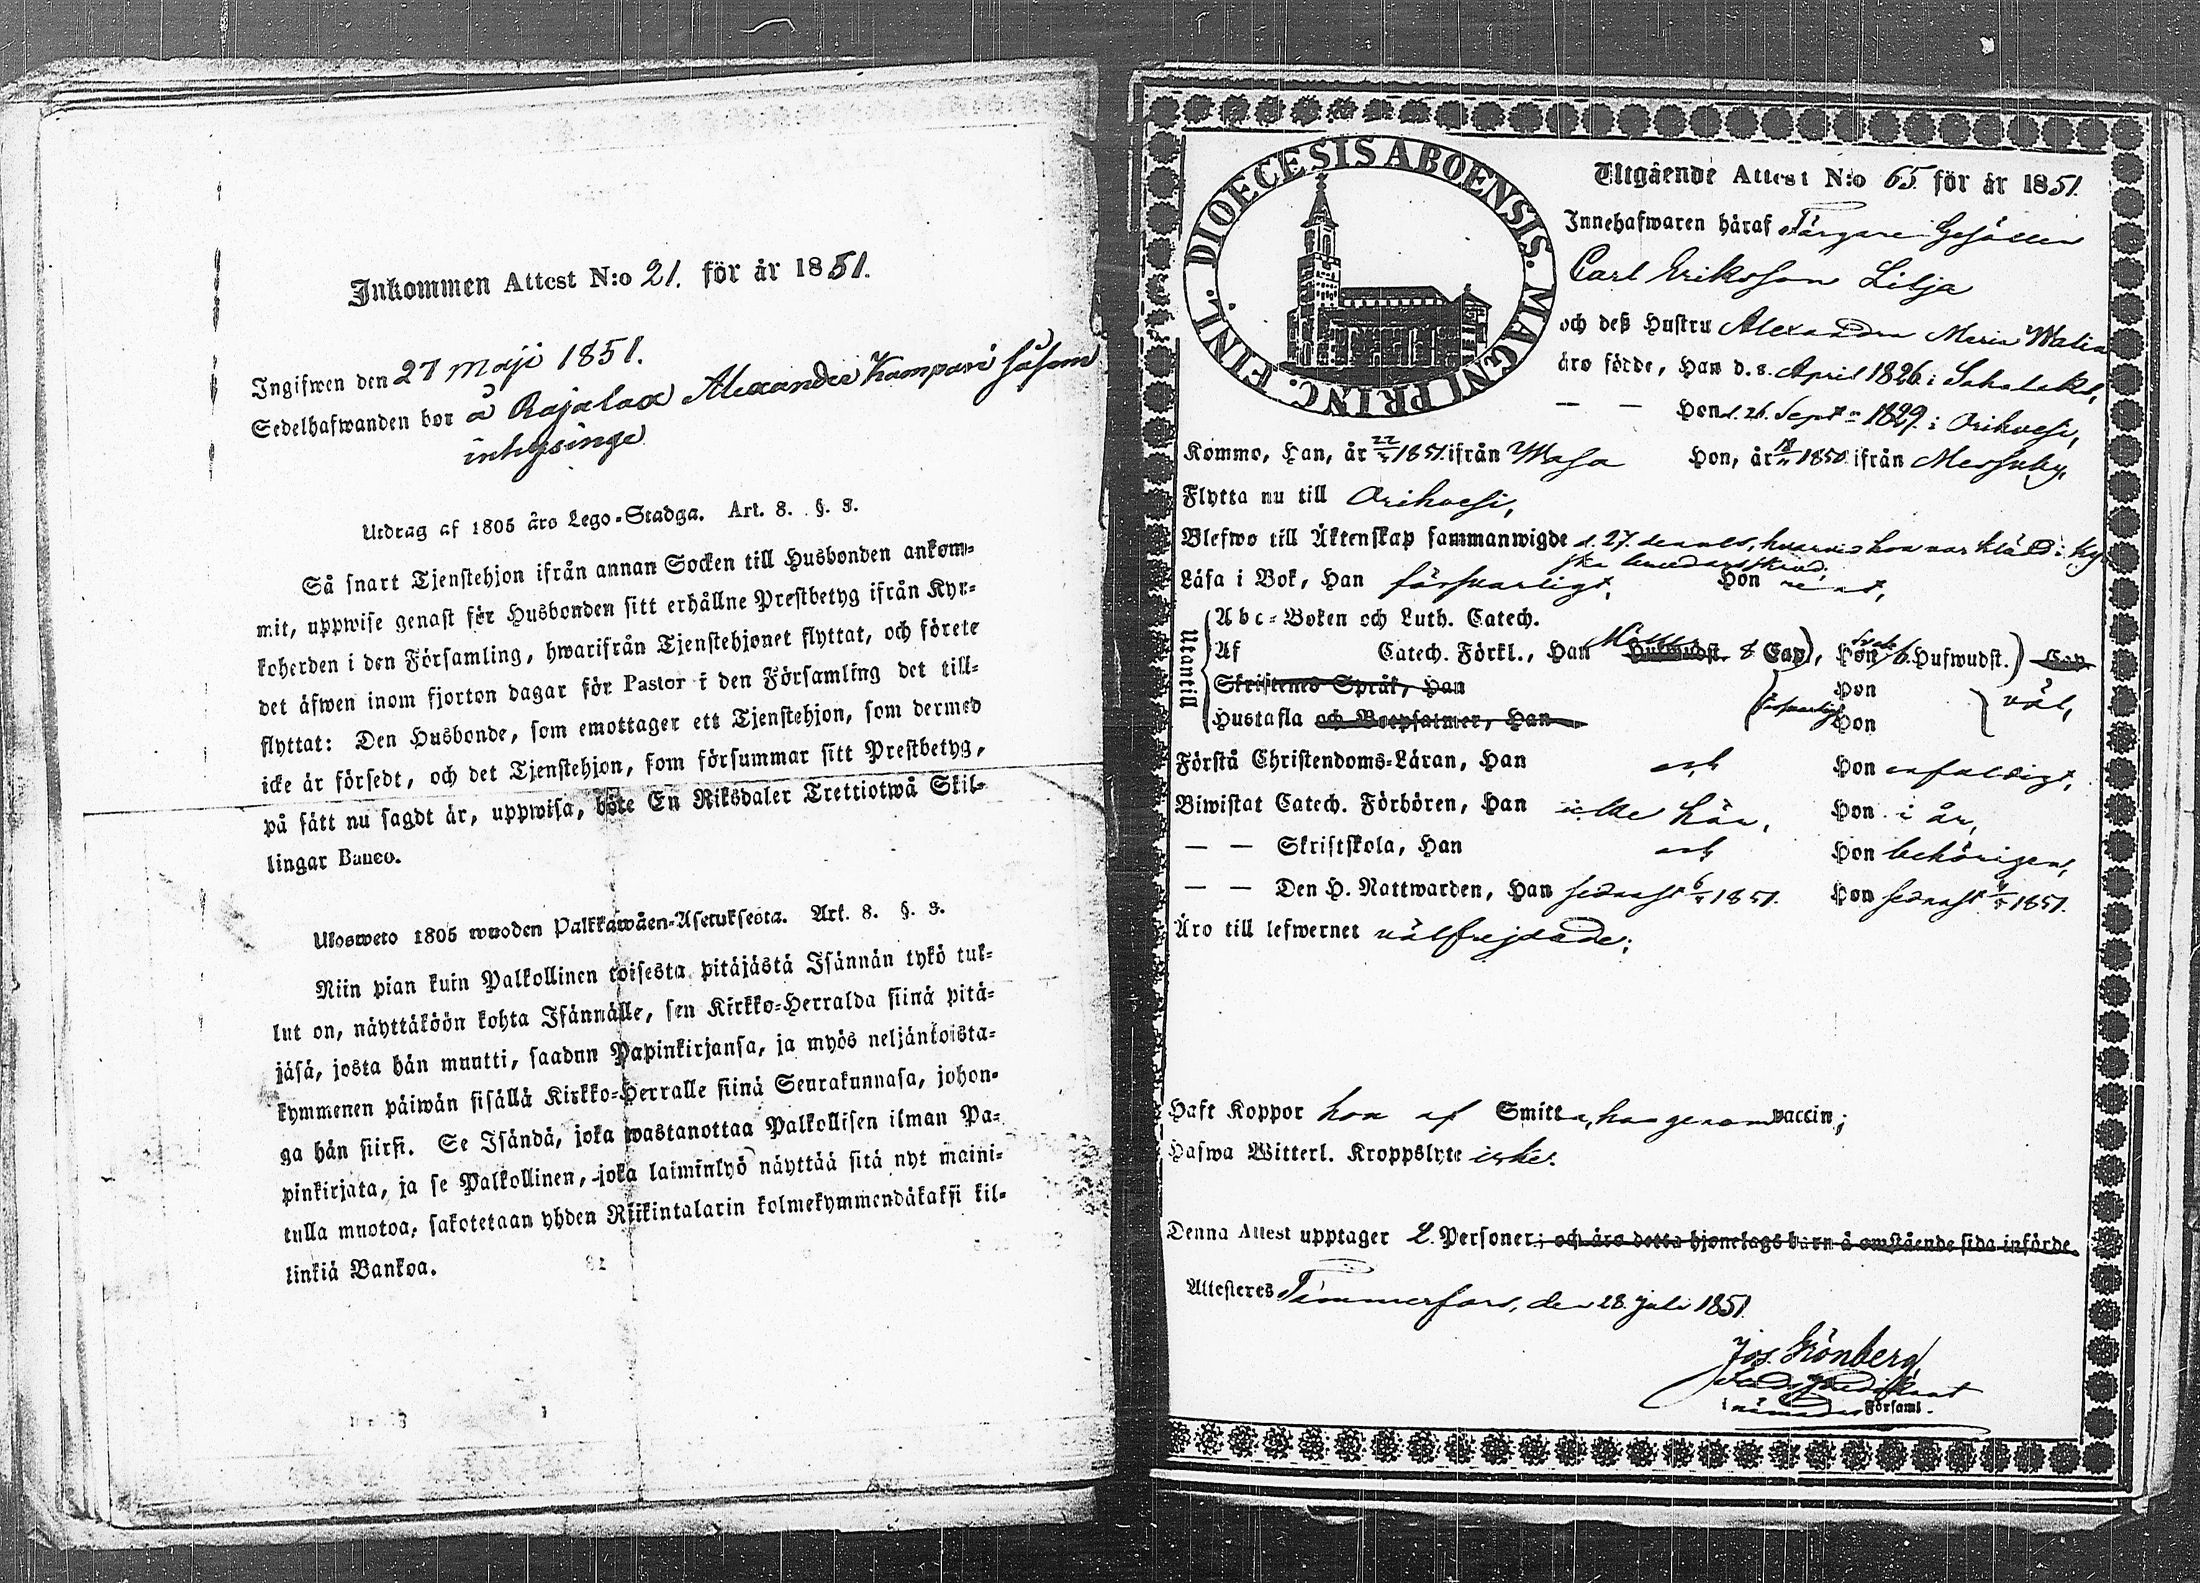 Inkommen Attest N:o 21. för år 1851.
Ingifwen den 27 Maji 1851.
Sedelhafwanden bor å Rajalax Alexander Kampari såsom
inhysinge
Utdrag af 1805 års Lego-Stadga. Art. 8. §. 3.
Så snart Tjenstehjon ifrån annan Socken till Husbonden ankom-
mit, uppwise genast för Husbonden sitt erhållne Prestbetyg ifrån Kyr-
koherden i den Församling, hwarifrån Tjenstehjonet flyttat, och förete
det äfwen inom fjorton dagar för Pastor i den Församling det till-
flyttat: Den Husbonde, som emottager ett Tjenstehjon, som dermed
icke är försedt, och det Tjenstehjon, som försummar sitt Prestbetyg,
på sätt nu sagdt är, uppwisa, böte En Riksdaler Trettiotwå Skil-
lingar Banco.
Ulosweto 1805 wuoden Palkkawäen-Asetuksesta. Art. 8. §. 3.
Niin pian kuin Palkollinen toisesta pitäjästä Isännän tykö tul-
lut on, näyttäköön kohta Isännälle, sen Kirkko-Herralda siinä pitä-
jäsä, josta hän muutti, saadun Papinkirjansa, ja myös neljäntoista-
kymmenen päiwän sisällä Kirkko-Herralle siinä Seurakunnasa, johon-
ga hän siirsi. Se Isändä, joka wastanottaa Palkollisen ilman Pa-
pinkirjata, ja se Palkollinen, joka laiminlyö näyttää sitä nyt maini-
tulla muotoa, sakotetaan yhden Riikintalarin kolmekymmendäkaksi kil-
linkiä Bankoa.
DIOECESIS ABOENSIS. MAGNI PRINC. FINL.
Utgående Attest N:o 65 för år 1851.
Innehafwaren häraf Färgare Gesällen
Carl Eriksson Lilja
och deß Hustru Alexandra Maria
äro födde, Han d. 8. April 1826 i Sahalaks,
— — Hon d. 26. Sept. 1829. i Orihvesi,
Kommo, Han, år 22/5 1851 ifrån Wasa Hon, år 1850 ifrån Messuby,
Flytta nu till Orihvesi,
Blefwo till Äktenskap sammanwigde d. 27. dennes, hvarvid hon var klädd i ky-
ska brudarsskrud.
Läsa i Bok, Han försvarligt, Hon rent,
Utantill
Abc-Boken och Luth. Catech.
Af Catech. Förkl., Han Hufwudst. 8 Cap), Hon 6. Hufwudst.) Cap
Skriftenes Språk, Han Hon
Hustafla och Botpsalmer, Han försvarligt Hon väl,
Förstå Christendoms-Läran, Han och Hon enfaldigt,
Biwistat Catech. Förhören, Han icke här, Hon i år,
— — Skriftskola, Han och Hon behörigen,
— — Den H. Nattwarden, Han sednast 1851. Hon sednast 1851.
Äro till lefwernet välfrejdade;
Haft Koppor hon af Smitta, han genom vaccin;
Hafwa Witterl. Kroppslyte icke.
Denna Attest upptager 2. Personer; och äro detta hjonelags barn å omstående sida införde.
Attesteres Tammerfors, den 28. Juli 1851
Jos. Grönberg
i nämnde Församl.